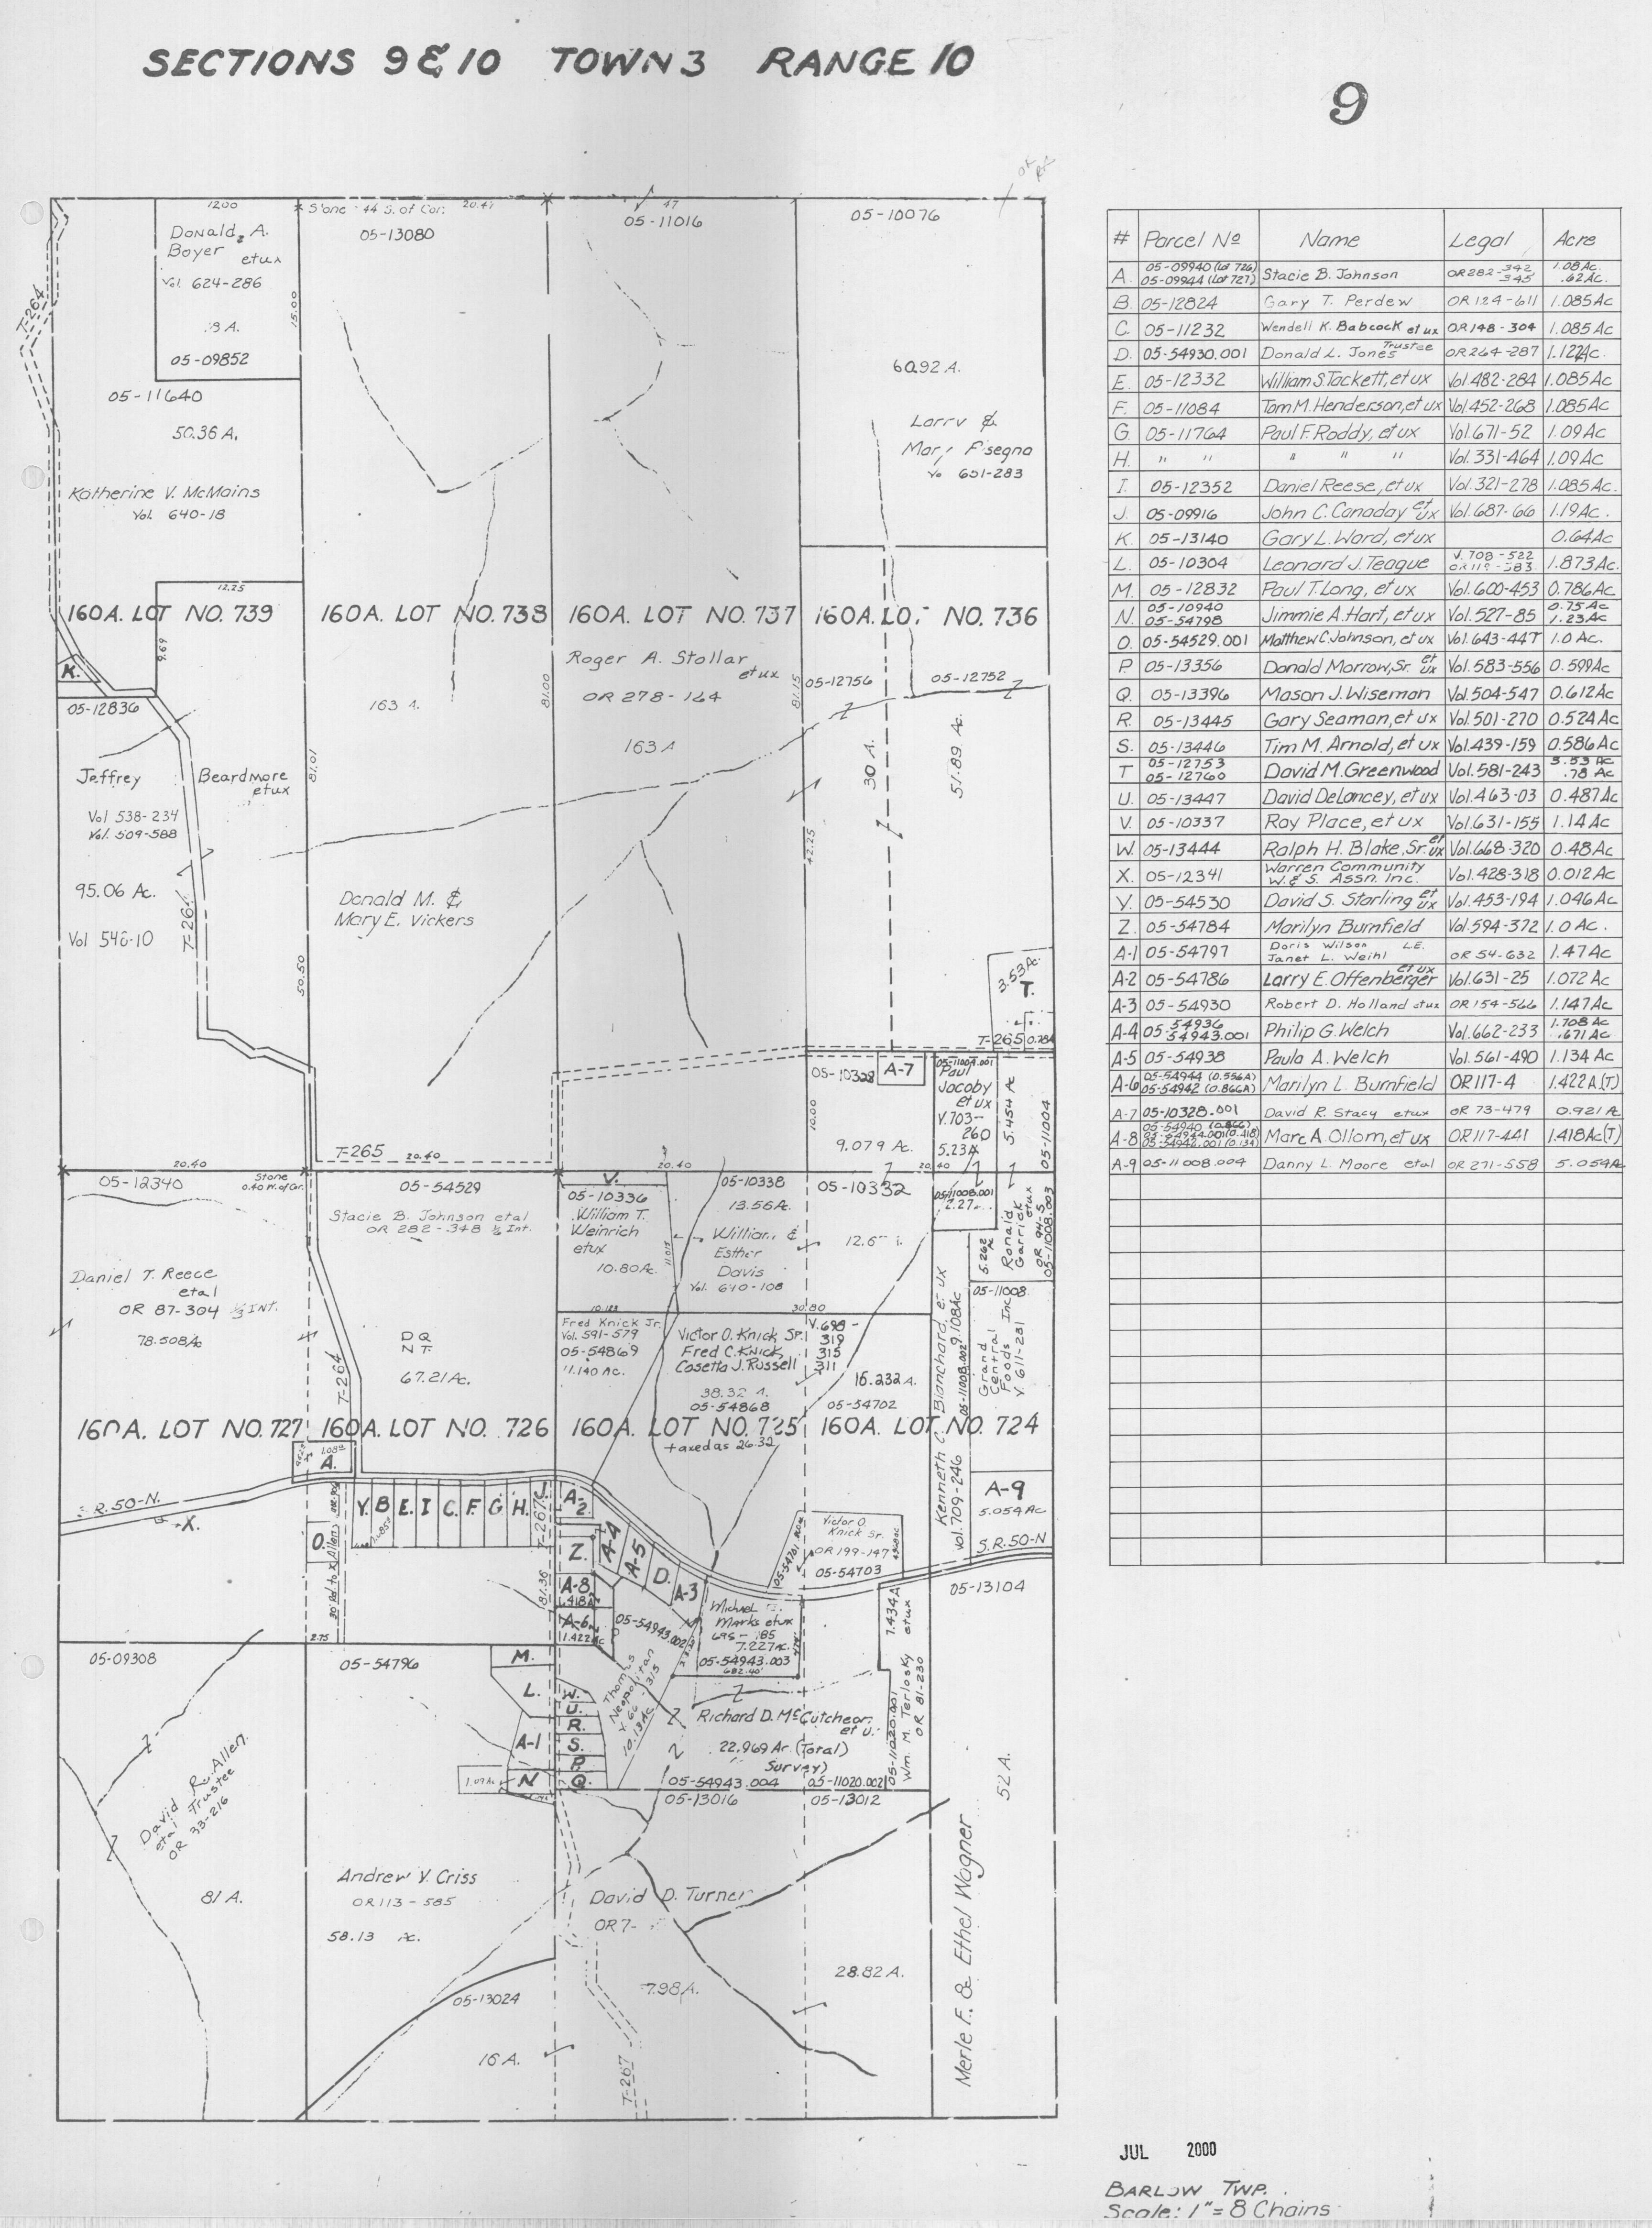 SECTIONS 9 & 10 TOWN 3 RANGE 10
9
1200
Donald A.
Boyer etux
Vol. 624-286
05-09852
15.00
Stone - 44 S. of Cor.
20.41
05-13080
47
05-11016
05-10076
T-264
05-11640
50.36 A.
Katherine V. McMains
Vol. 640-18
60.92 A.
Larry &
12.25
9.69
160A. LOT NO. 739
160A. LOT NO. 738
160A. LOT NO. 737
160A. LOT NO. 736
K.
05-12836
Jeffrey Beardmore
etux
Vol 538-234
Vol. 509-588
95.06 Ac.
Vol 546-10
T-264
81.01
50.50
163 A.
Donald M. &
Mary E. Vickers
81.00
Roger A. Stollar
etux
OR 278-164
163 A
81.15
42.25
05-12756
05-12752
30 A.
51.89 Ac.
3.53 Ac.
T.
T-265
05-10328
A-7
10.00
9.079 Ac.
05-11004.001
Paul
Jacoby
etux
V.703-
260
5.23A
5.454 Ac
05-11004
T-265
20.40
20.40
20.40
20.40
Stone
0.40 W. of Cor.
05-12340
Daniel T. Reece
etal
OR 87-304 ⅓ INT.
78.508Ac
05-54529
Stacie B. Johnson etal
OR 282-348 ½ Int.
67.21 Ac.
T-264
V.
05-10336
William T.
Weinrich
etux
10.80Ac.
11.015
05-10338
13.56Ac.
William &
Esther
Davis
Vol. 640-108
05-10332
05-11008.001
2.27
5.262 Ac
Ronald
Garrick
etux
05-11008.003
30.80
Fred Knick Jr.
Vol. 591-579
05-54869
11.140 Ac.
Victor O. Knick Sr.
Fred C. Knick
Casetta J. Russell
V. 698-
319
315
311
38.32 A.
05-54868
16.232 A.
05-54702
Kenneth C. Blanchard et ux
Vol. 709-246
05-11008.002 9.108Ac
05-11008
Grand
Central
Foods Inc
V 611-231
160A. LOT NO. 727
160A. LOT NO. 726
160A. LOT NO. 725
160A. LOT NO. 724
taxed as 26.32
A.
S.R. 50-N.
X.
O.
Y. B E. I C. F. G H. J.
T-267
81.36
A-2
Z.
A-4
A-5
D.
A-3
A-8
1.418A
A-6
1.422Ac
05-54943.002
05-54701
Victor O.
Knick Sr.
OR 199-147
05-54703
A-9
5.054 Ac
S.R. 50-N
05-13104
Michael
Marks etux
695-185
7.227Ac.
05-54943.003
682.40'
7.434A
Wm. M. Terlosky etux
OR 81-230
05-11020.001
2.75
05-09308
David R. Allen
etal Trustee
OR 33-216
81 A.
05-54796
M.
L.
A-1
N
W.
U.
R.
S.
P.
Q.
Thomas
Neapolitan
10.13Ac.
Richard D. McCutcheon
22.969 Ac. (Total)
Survey)
05-54943.004
05-11020.002
05-13016
05-13012
Andrew V. Criss
OR 113-585
58.13 Ac.
David D. Turner
OR 7-
28.82 A.
05-13024
16 A.
T-267
Merle F. & Ethel Wagner
52 A.
# Parcel No Name Legal Acre
A. 05-09940 (Lot 726) 05-09944 (Lot 727) Stacie B. Johnson OR 282-342 345 1.08 Ac. .62 Ac.
B. 05-12824 Gary T. Perdew OR 124-611 1.085 Ac
C. 05-11232 Wendell K. Babcock et ux OR 148-304 1.085 Ac
D. 05-54930.001 Donald L. Jones Trustee OR 264-287 1.122 Ac.
E. 05-12332 William S. Tackett, et ux Vol. 482-284 1.085 Ac
F. 05-11084 Tom M. Henderson, et ux Vol. 452-268 1.085 Ac
G. 05-11764 Paul F. Roddy, et ux Vol. 671-52 1.09 Ac
H. " " " " " Vol. 331-464 1.09 Ac
I. 05-12352 Daniel Reese, et ux Vol. 321-278 1.085 Ac.
J. 05-09916 John C. Canaday et ux Vol. 687-66 1.19 Ac.
K. 05-13140 Gary L. Ward, et ux 0.64 Ac
L. 05-10304 Leonard J. Teague V. 708-522 OR 119-383 1.873 Ac.
M. 05-12832 Paul T. Long, et ux Vol. 600-453 0.786 Ac
N. 05-10940 05-54798 Jimmie A. Hart, et ux Vol. 527-85 0.75 Ac 1.23 Ac
O. 05-54529.001 Matthew C. Johnson, et ux Vol. 643-447 1.0 Ac.
P. 05-13356 Donald Morrow, Sr. et ux Vol. 583-556 0.599 Ac
Q. 05-13396 Mason J. Wiseman Vol. 504-547 0.612 Ac
R. 05-13445 Gary Seaman, et ux Vol. 501-270 0.524 Ac
S. 05-13446 Tim M. Arnold, et ux Vol. 439-159 0.586 Ac
T 05-12753 05-12760 David M. Greenwood Vol. 581-243 3.53 Ac .78 Ac
U. 05-13447 David DeLancey, et ux Vol. 463-03 0.487 Ac
V. 05-10337 Ray Place, et ux Vol. 631-155 1.14 Ac
W. 05-13444 Ralph H. Blake, Sr. et ux Vol. 668-320 0.48 Ac
X. 05-12341 Warren Community W. & S. Assn. Inc. Vol. 428-318 0.012 Ac
Y. 05-54530 David S. Starling et ux Vol. 453-194 1.046 Ac
Z. 05-54784 Marilyn Bumfield Vol. 594-372 1.0 Ac.
A-1 05-54797 Doris Wilson L.E. Janet L. Weihl OR 54-632 1.47 Ac
A-2 05-54786 Larry E. Offenberger et ux Vol. 631-25 1.072 Ac
A-3 05-54930 Robert D. Holland etux OR 154-566 1.147 Ac
A-4 05-54936 54943.001 Philip G. Welch Vol. 662-233 1.708 Ac .671 Ac
A-5 05-54938 Paula A. Welch Vol. 561-490 1.134 Ac
A-6 05-54944 (0.556A) 05-54942 (0.866A) Marilyn L. Bumfield OR 117-4 1.422 A.(T)
A-7 05-10328.001 David R. Stacy etux OR 73-479 0.921 A
A-8 05-54940 (0.866) 05-54944.001 (0.418) 05-54942.001 (0.134) Marc A. Ollom, et ux OR 117-441 1.418 Ac (T)
A-9 05-11008.004 Danny L. Moore etal OR 271-558 5.054 Ac
JUL 2000
BARLOW TWP.
Scale: 1" = 8 Chains